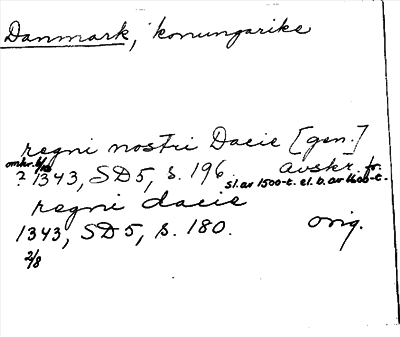 Danmark, konungarike
regni nostri Dacie [gen.]
omkr.
? 1343, SD5, s. 196. Avskr. fr.
sl. av 1500-t. el. b. av 1600-t.
regni dacie
1343, SD5, s. 180. orig.
2/8